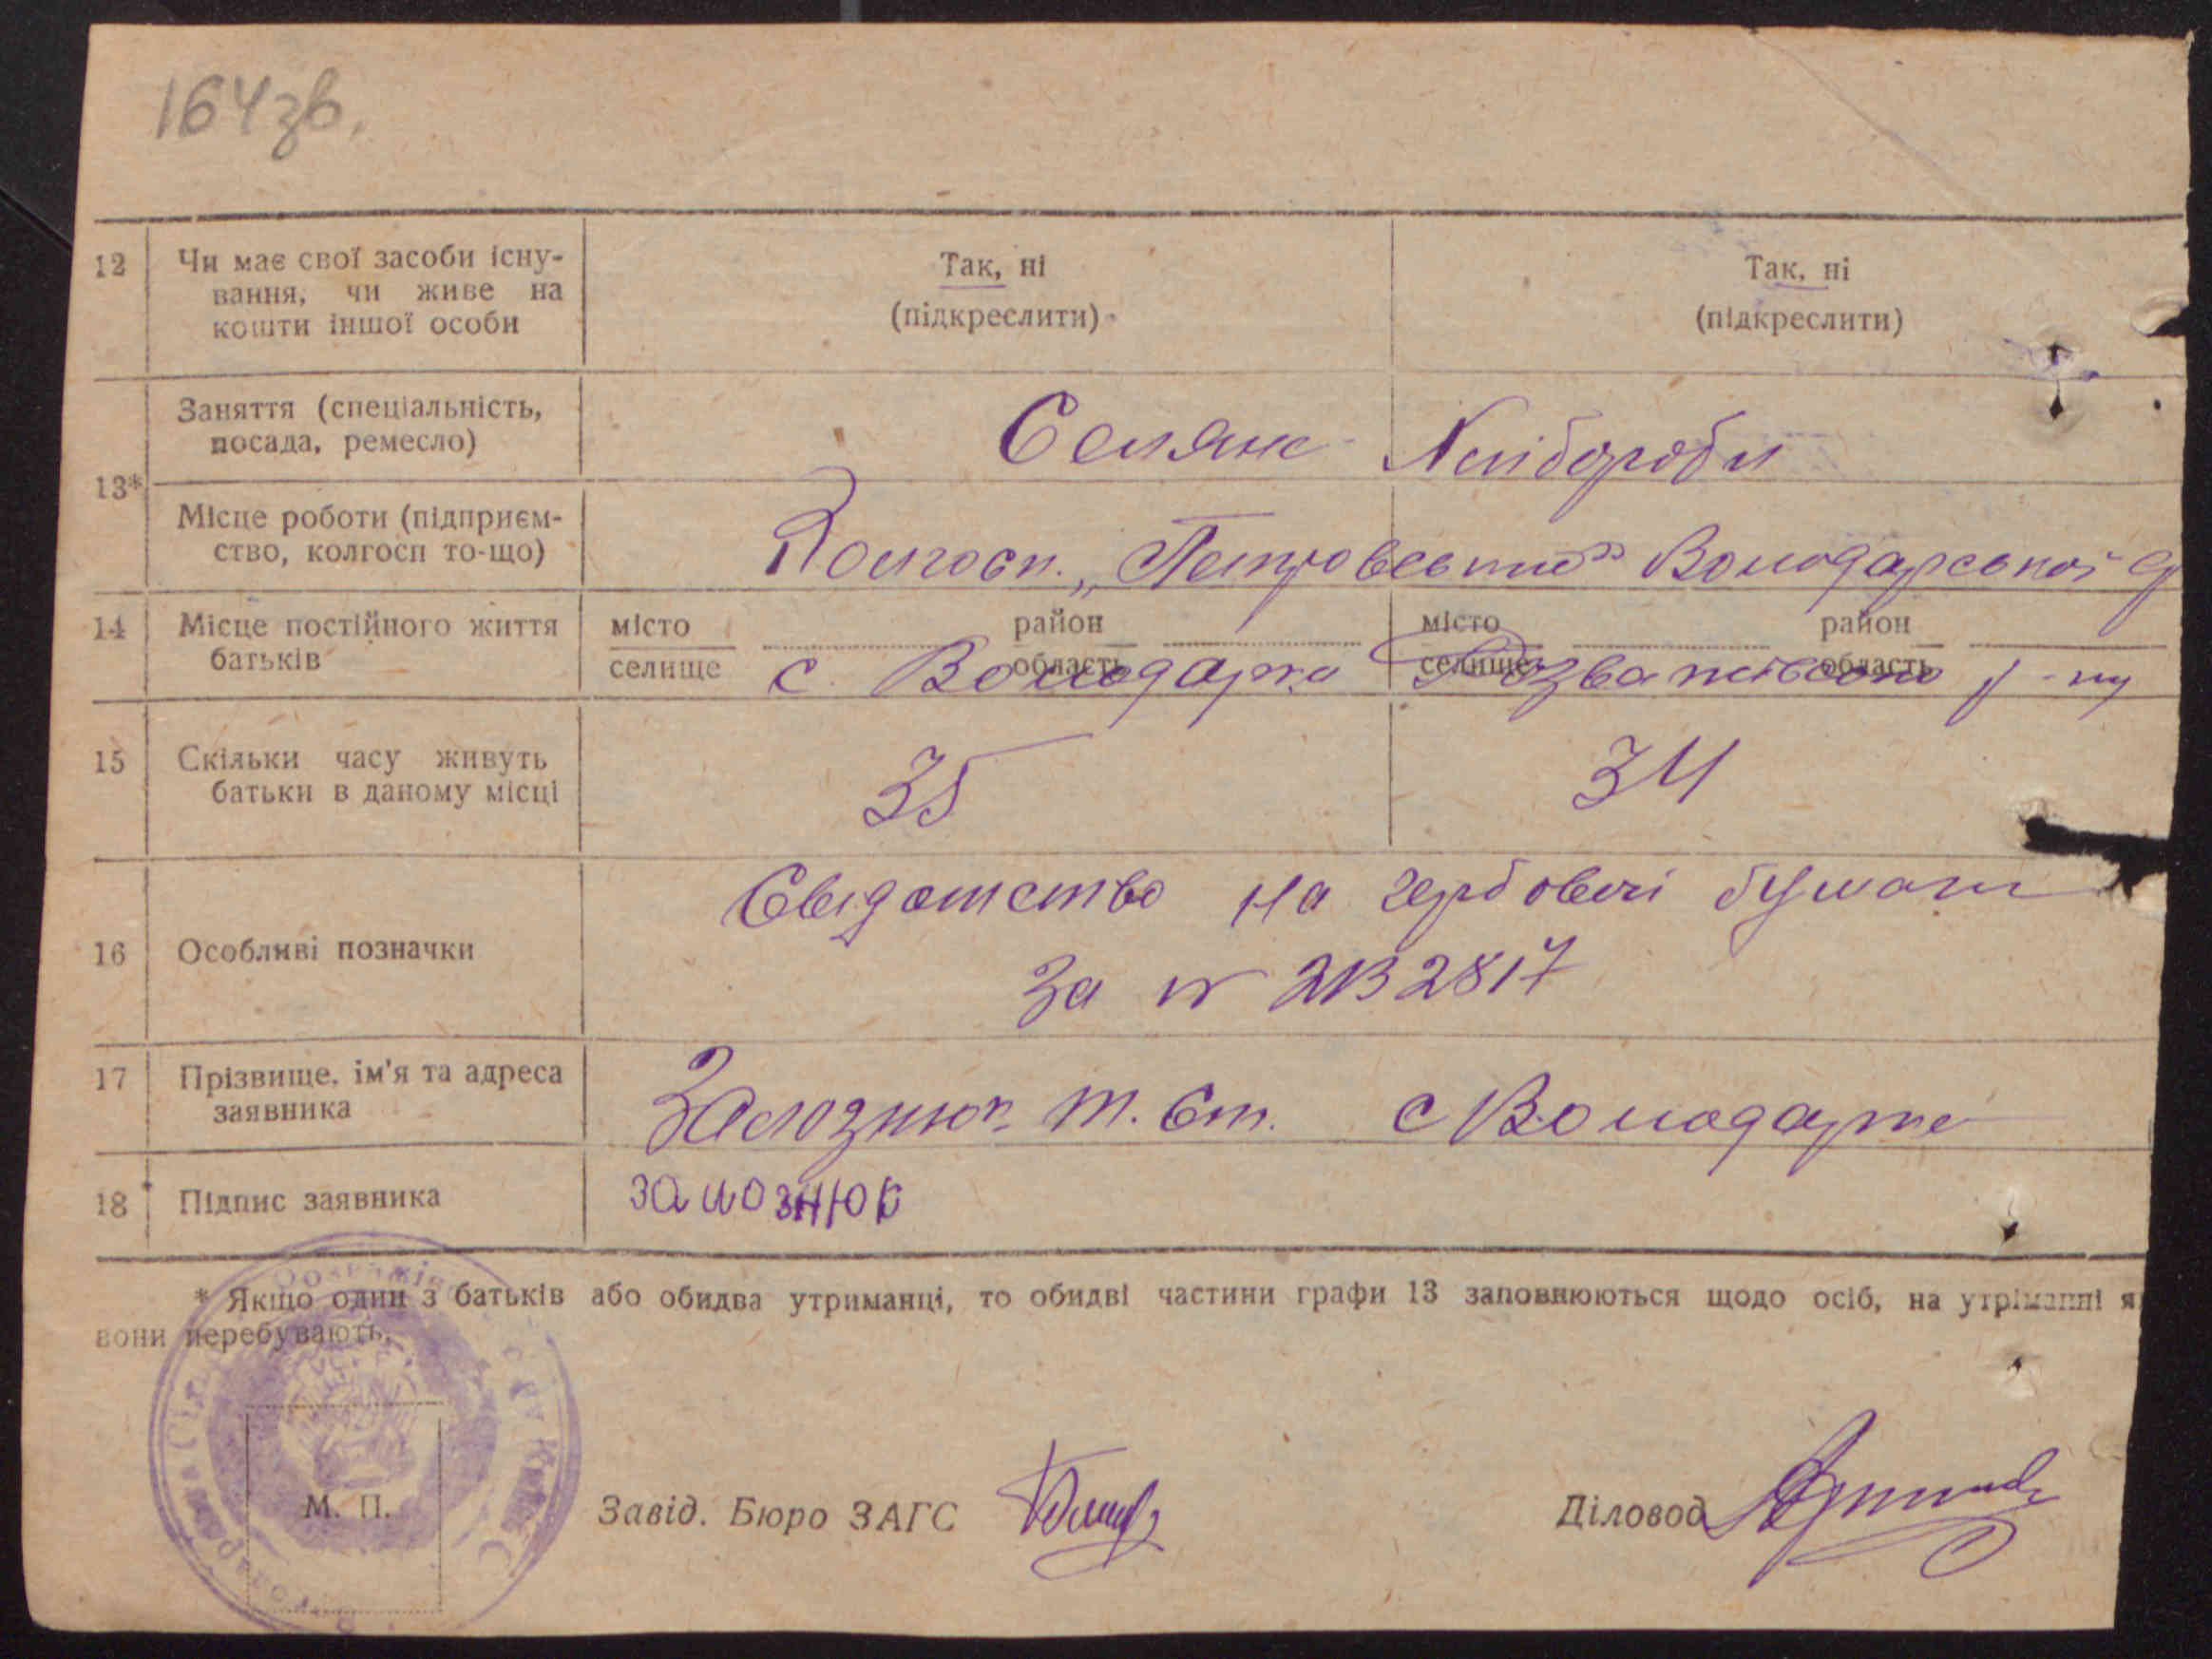 164 зв.
12 Чи має свої засоби існу-
вання, чи живе на
кошти іншої особи
Так, ні
(підкреслити)
Так, ні
(підкреслити)
13*
Заняття (спеціальність,
посада, ремесло)
Селяне Хлібороби
Місце роботи (підприєм-
ство, колгосп то-що)
Колгосп. „Петровський” Володарської
14 Місце постійного життя
батьків
місто
селище
район
область
місто
селище
район
область
с. Володарка Розважівського р-ну
15 Скільки часу живуть
батьки в даному місці
35
34
16 Особливі позначки
Свидотство на гербовечі бумаги
За № 2В2817
17 Прізвище, ім'я та адреса
заявника
Залознюк Т. Ст. с Володарке
18 Підпис заявника
Залознюк
* Якщо один з батьків або обидва утриманці, то обидві частини графи 13 заповнюються щодо осіб, на утріманні я
вони перебувають.
М. П.
Завід. Бюро ЗАГС
Діловод